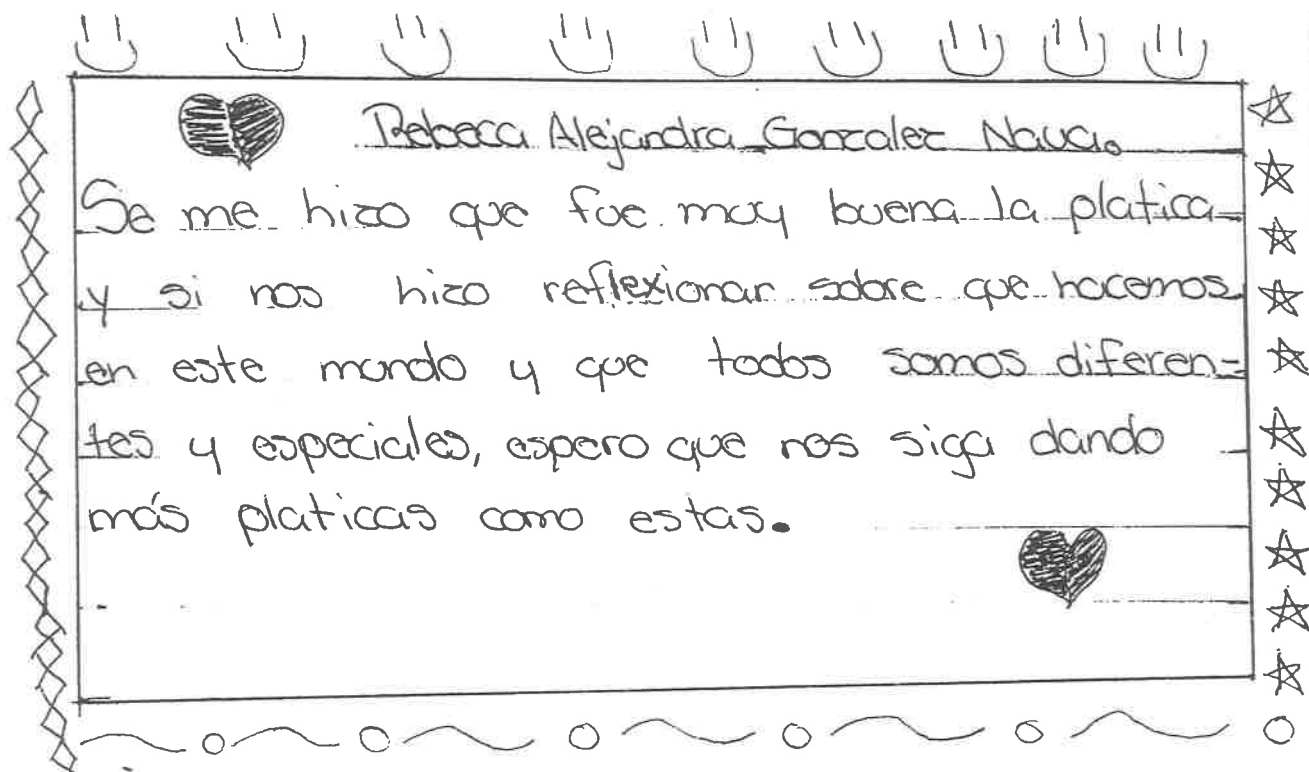 Rebeca Alejandra Gonzalez Nava.
Se me hizo que fue muy buena la platica
y si nos hizo reflexionar sobre que hacemos
en este mundo y que todos somos diferen-
tes y especiales, espero que nos siga dando
más platicas como estas.